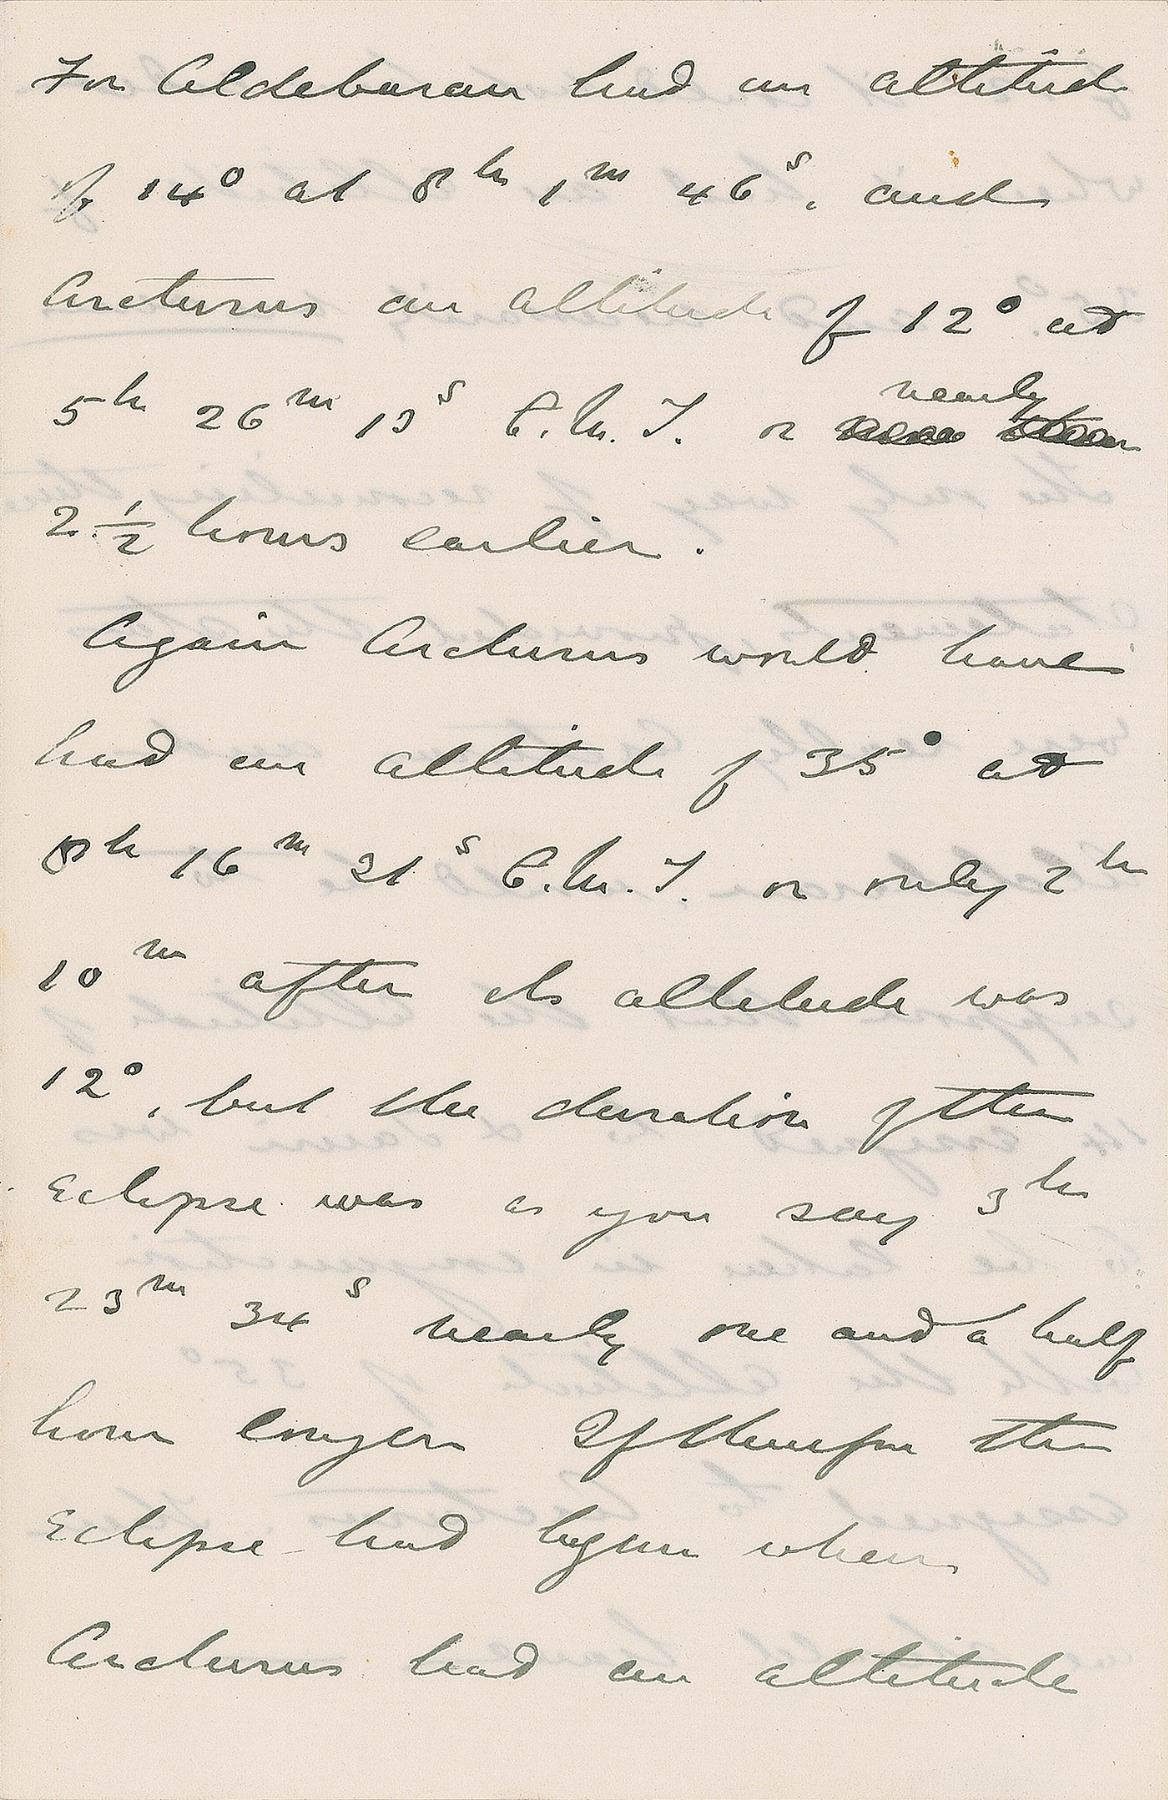 For Aldebaran had an altitude
of 14° at 8h 1m 46s, and
Arcturus an altitude of 12° at
5h 26m 13s C.M.T. or nearly
2 1/2 hours earlier.
Again Arcturus would have
had an altitude of 35° at
8h 16m 21s C.M.T. or only 2h
10m after its altitude was
12°, but the duration of the
Eclipse was as you say 3h
23m 34s nearly one and a half
hour longer If therefore the
Eclipse had begun when
Arcturus had an altitude